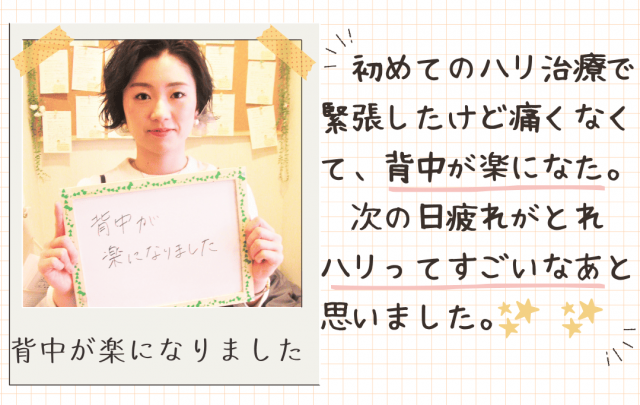 背中が
楽になりました
背中が楽になりました
初めてのハリ治療で
緊張したけど痛くなく
て、背中が楽になた。
次の日疲れがとれ
ハリってすごいなあと
思いました。